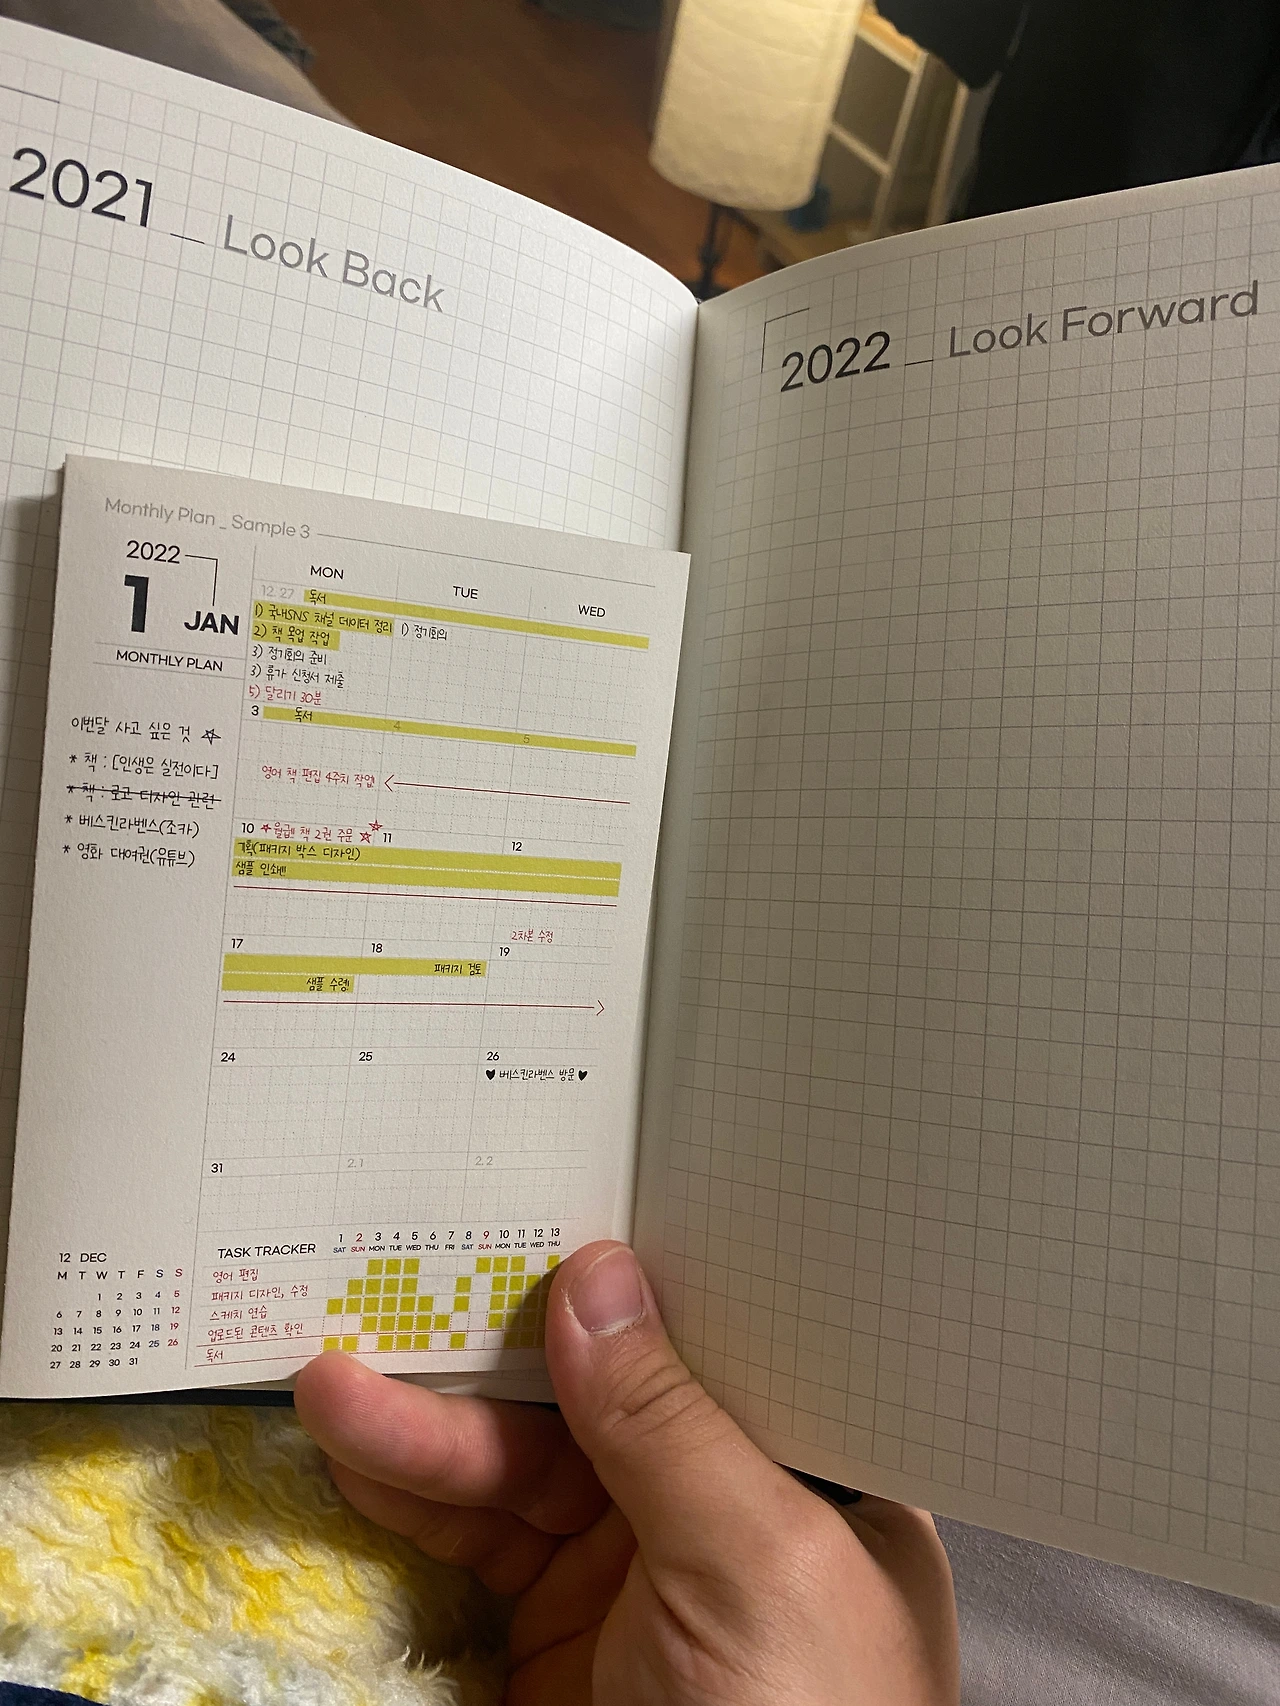 2021 _ Look Back
2022 _ Look Forward
Monthly Plan _ Sample 3
2022
1 JAN
MONTHLY PLAN
이번달 사고 싶은 것
* 책 : [인생은 실전이다]
* 책 : 로고 디자인 관련
* 베스킨라벤스(조카)
* 영화 대여권(유튜브)
MON TUE WED
12. 27 독서
1) 국내SNS 채널 데이터 정리 1) 정기회의
2) 책 목업 작업
3) 정기회의 준비
3) 휴가 신청서 제출
5) 달리기 30분
3 독서 4 5
영어 책 편집 4주치 작업
10 월급!! 책 2권 주문 11 12
기획(패키지 박스 디자인)
샘플 인쇄!!
2차본 수정
17 18 19
패키지 검토
샘플 수령!
24 25 26
♥ 베스킨라벤스 방문 ♥
31 2. 1 2. 2
TASK TRACKER
1 2 3 4 5 6 7 8 9 10 11 12 13
SAT SUN MON TUE WED THU FRI SAT SUN MON TUE WED THU
영어 편집
패키지 디자인, 수정
스케치 연습
업로드된 콘텐츠 확인
독서
12 DEC
M T W T F S S
1 2 3 4 5
6 7 8 9 10 11 12
13 14 15 16 17 18 19
20 21 22 23 24 25 26
27 28 29 30 31